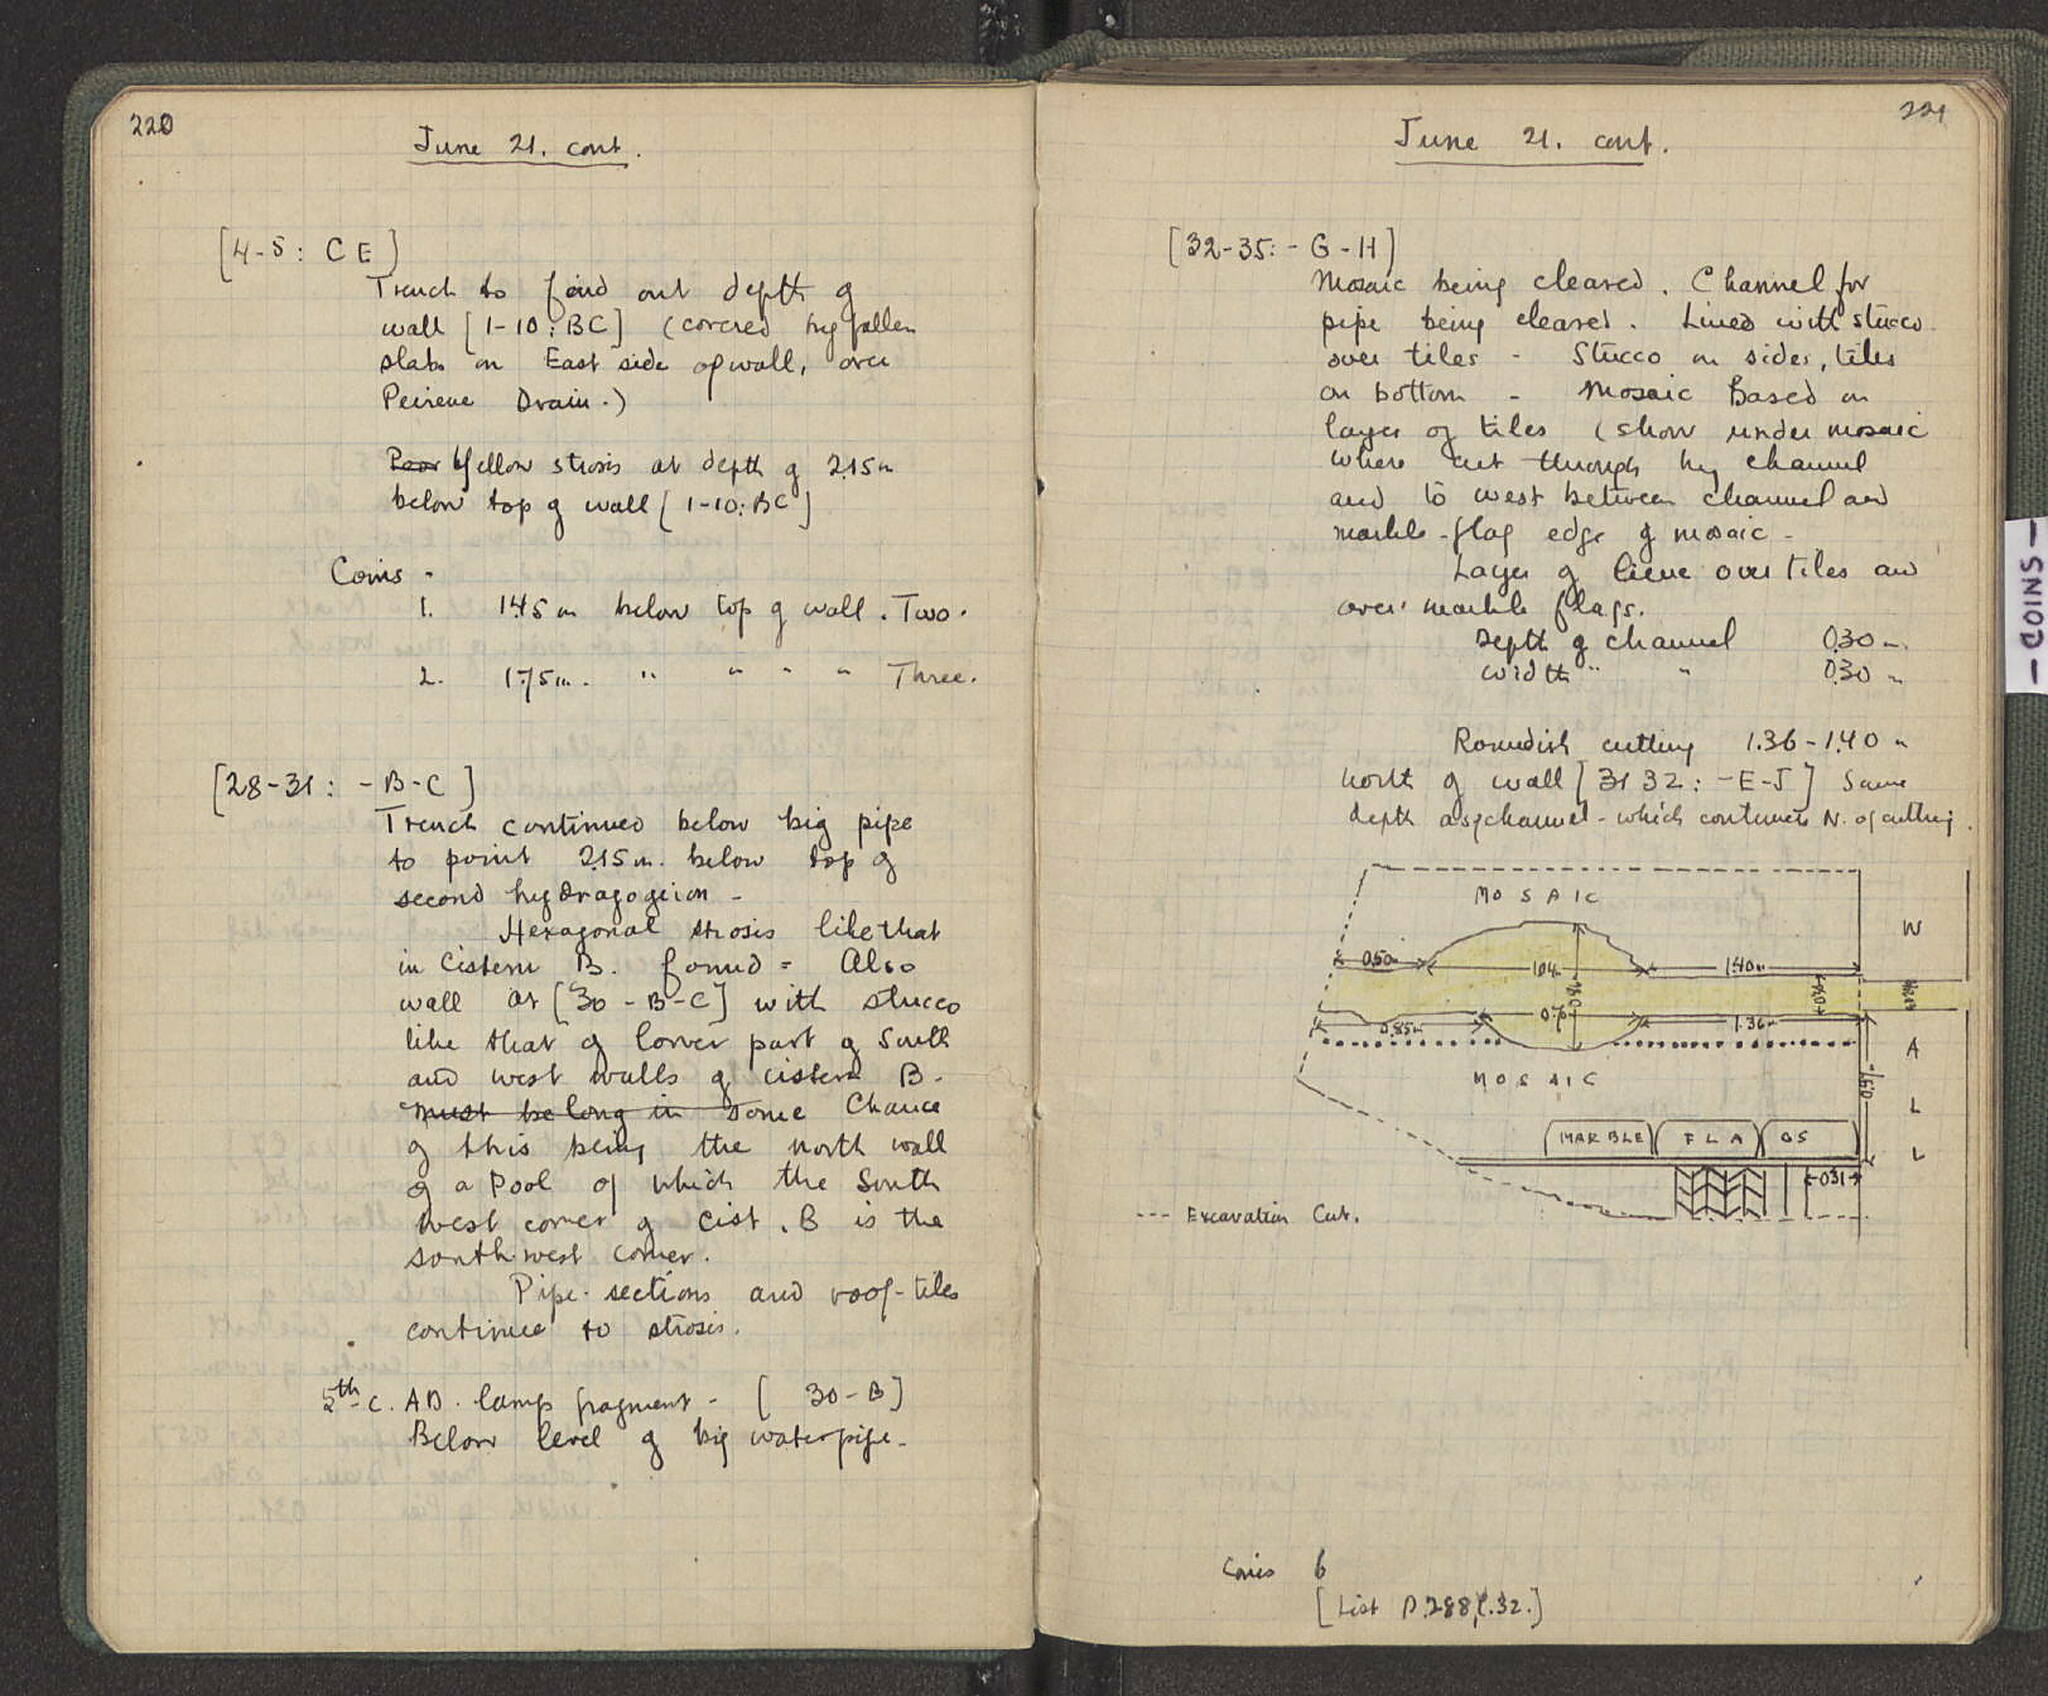 220
June 21. cont.
[4-5: C E]
Trench to find out depth of
wall [1-10: BC] (covered by fallen
slabs on East side of wall, over
Peirene Drain.)
Poor Yellow strosis at depth of 2.15 m
below top of wall [1-10: BC]
Coins -
1. 1.45 m below top of wall. Two.
2. 1.75 m. " " " " Three.
[28-31: -B-C]
Trench continued below big pipe
to point 2.15 m. below top of
second hydragogeion -
Hexagonal strosis like that
in Cistern B. found = Also
wall at [30 -B-C] with stucco
like that of lower part of South
and west walls of cistern B -
must belong in some Chance
of this being the north wall
of a Pool of which the South
west corner of Cist. B is the
southwest corner.
Pipe-sections and roof-tiles
continue to strosis.
5th c. AD. lamp fragment - [30-B]
Below level of big waterpipe -
221
June 21. cont.
[32-35: -G-H]
Mosaic being cleared. Channel for
pipe being cleared. Lined with stucco
over tiles - Stucco on sides, tiles
on bottom - Mosaic Based on
layer of tiles (show under mosaic
where cut through by channel
and to west between channel and
marble-flag edge of mosaic -
Layer of lime over tiles and
over marble flags.
Depth of channel 0.30 m.
Width " " 0.30 m
Roundish cutting 1.36 - 1.40 m
north of wall [31 32: -E-J] Same
depth as channel - which continues N. of cutting.
MOSAIC
W
0.50m
1.04m
1.40m
0.76
0.85m
1.36m
A
MOSAIC
L
MARBLE FLAGS
L
0.31
--- Excavation Cut.
Coins 6
[List p. 288, l. 32.]
- COINS -